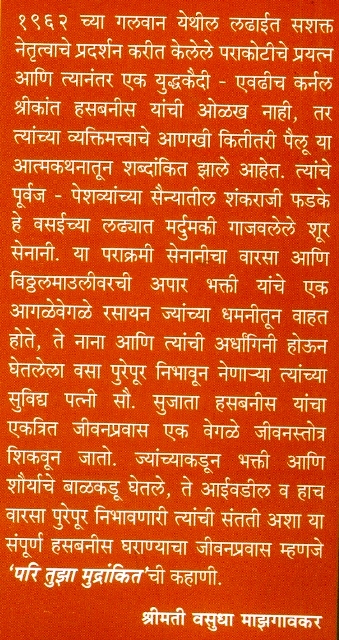 १९६२ च्या गलवान येथील लढाईत सशक्त
नेतृत्वाचे प्रदर्शन करीत केलेले पराकोटीचे प्रयत्न
आणि त्यानंतर एक युद्धकैदी - एवढीच कर्नल
श्रीकांत हसबनीस यांची ओळख नाही, तर
त्यांच्या व्यक्तिमत्त्वाचे आणखी कितीतरी पैलू या
आत्मकथनातून शब्दांकित झाले आहेत. त्यांचे
पूर्वज - पेशव्यांच्या सैन्यातील शंकराजी फडके
हे वसईच्या लढ्यात मर्दुमकी गाजवलेले शूर
सेनानी. या पराक्रमी सेनानीचा वारसा आणि
विठ्ठलमाउलीवरची अपार भक्ती यांचे एक
आगळेवेगळे रसायन ज्यांच्या धमनीतून वाहत
होते, ते नाना आणि त्यांची अर्धांगिनी होऊन
घेतलेला वसा पुरेपूर निभावून नेणाऱ्या त्यांच्या
सुविद्य पत्नी सौ. सुजाता हसबनीस यांचा
एकत्रित जीवनप्रवास एक वेगळे जीवनस्तोत्र
शिकवून जातो. ज्यांच्याकडून भक्ती आणि
शौर्याचे बाळकडू घेतले, ते आईवडील व हाच
वारसा पुरेपूर निभावणारी त्यांची संतती अशा या
संपूर्ण हसबनीस घराण्याचा जीवनप्रवास म्हणजे
‘परि तुझा मुद्रांकित’ची कहाणी.
श्रीमती वसुधा माझगावकर